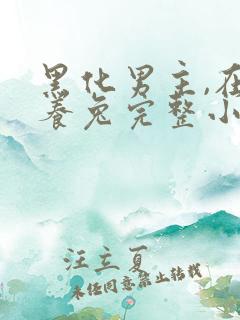 黑化男主,在
養兔完整小
汪立夏
未经同意禁止转载